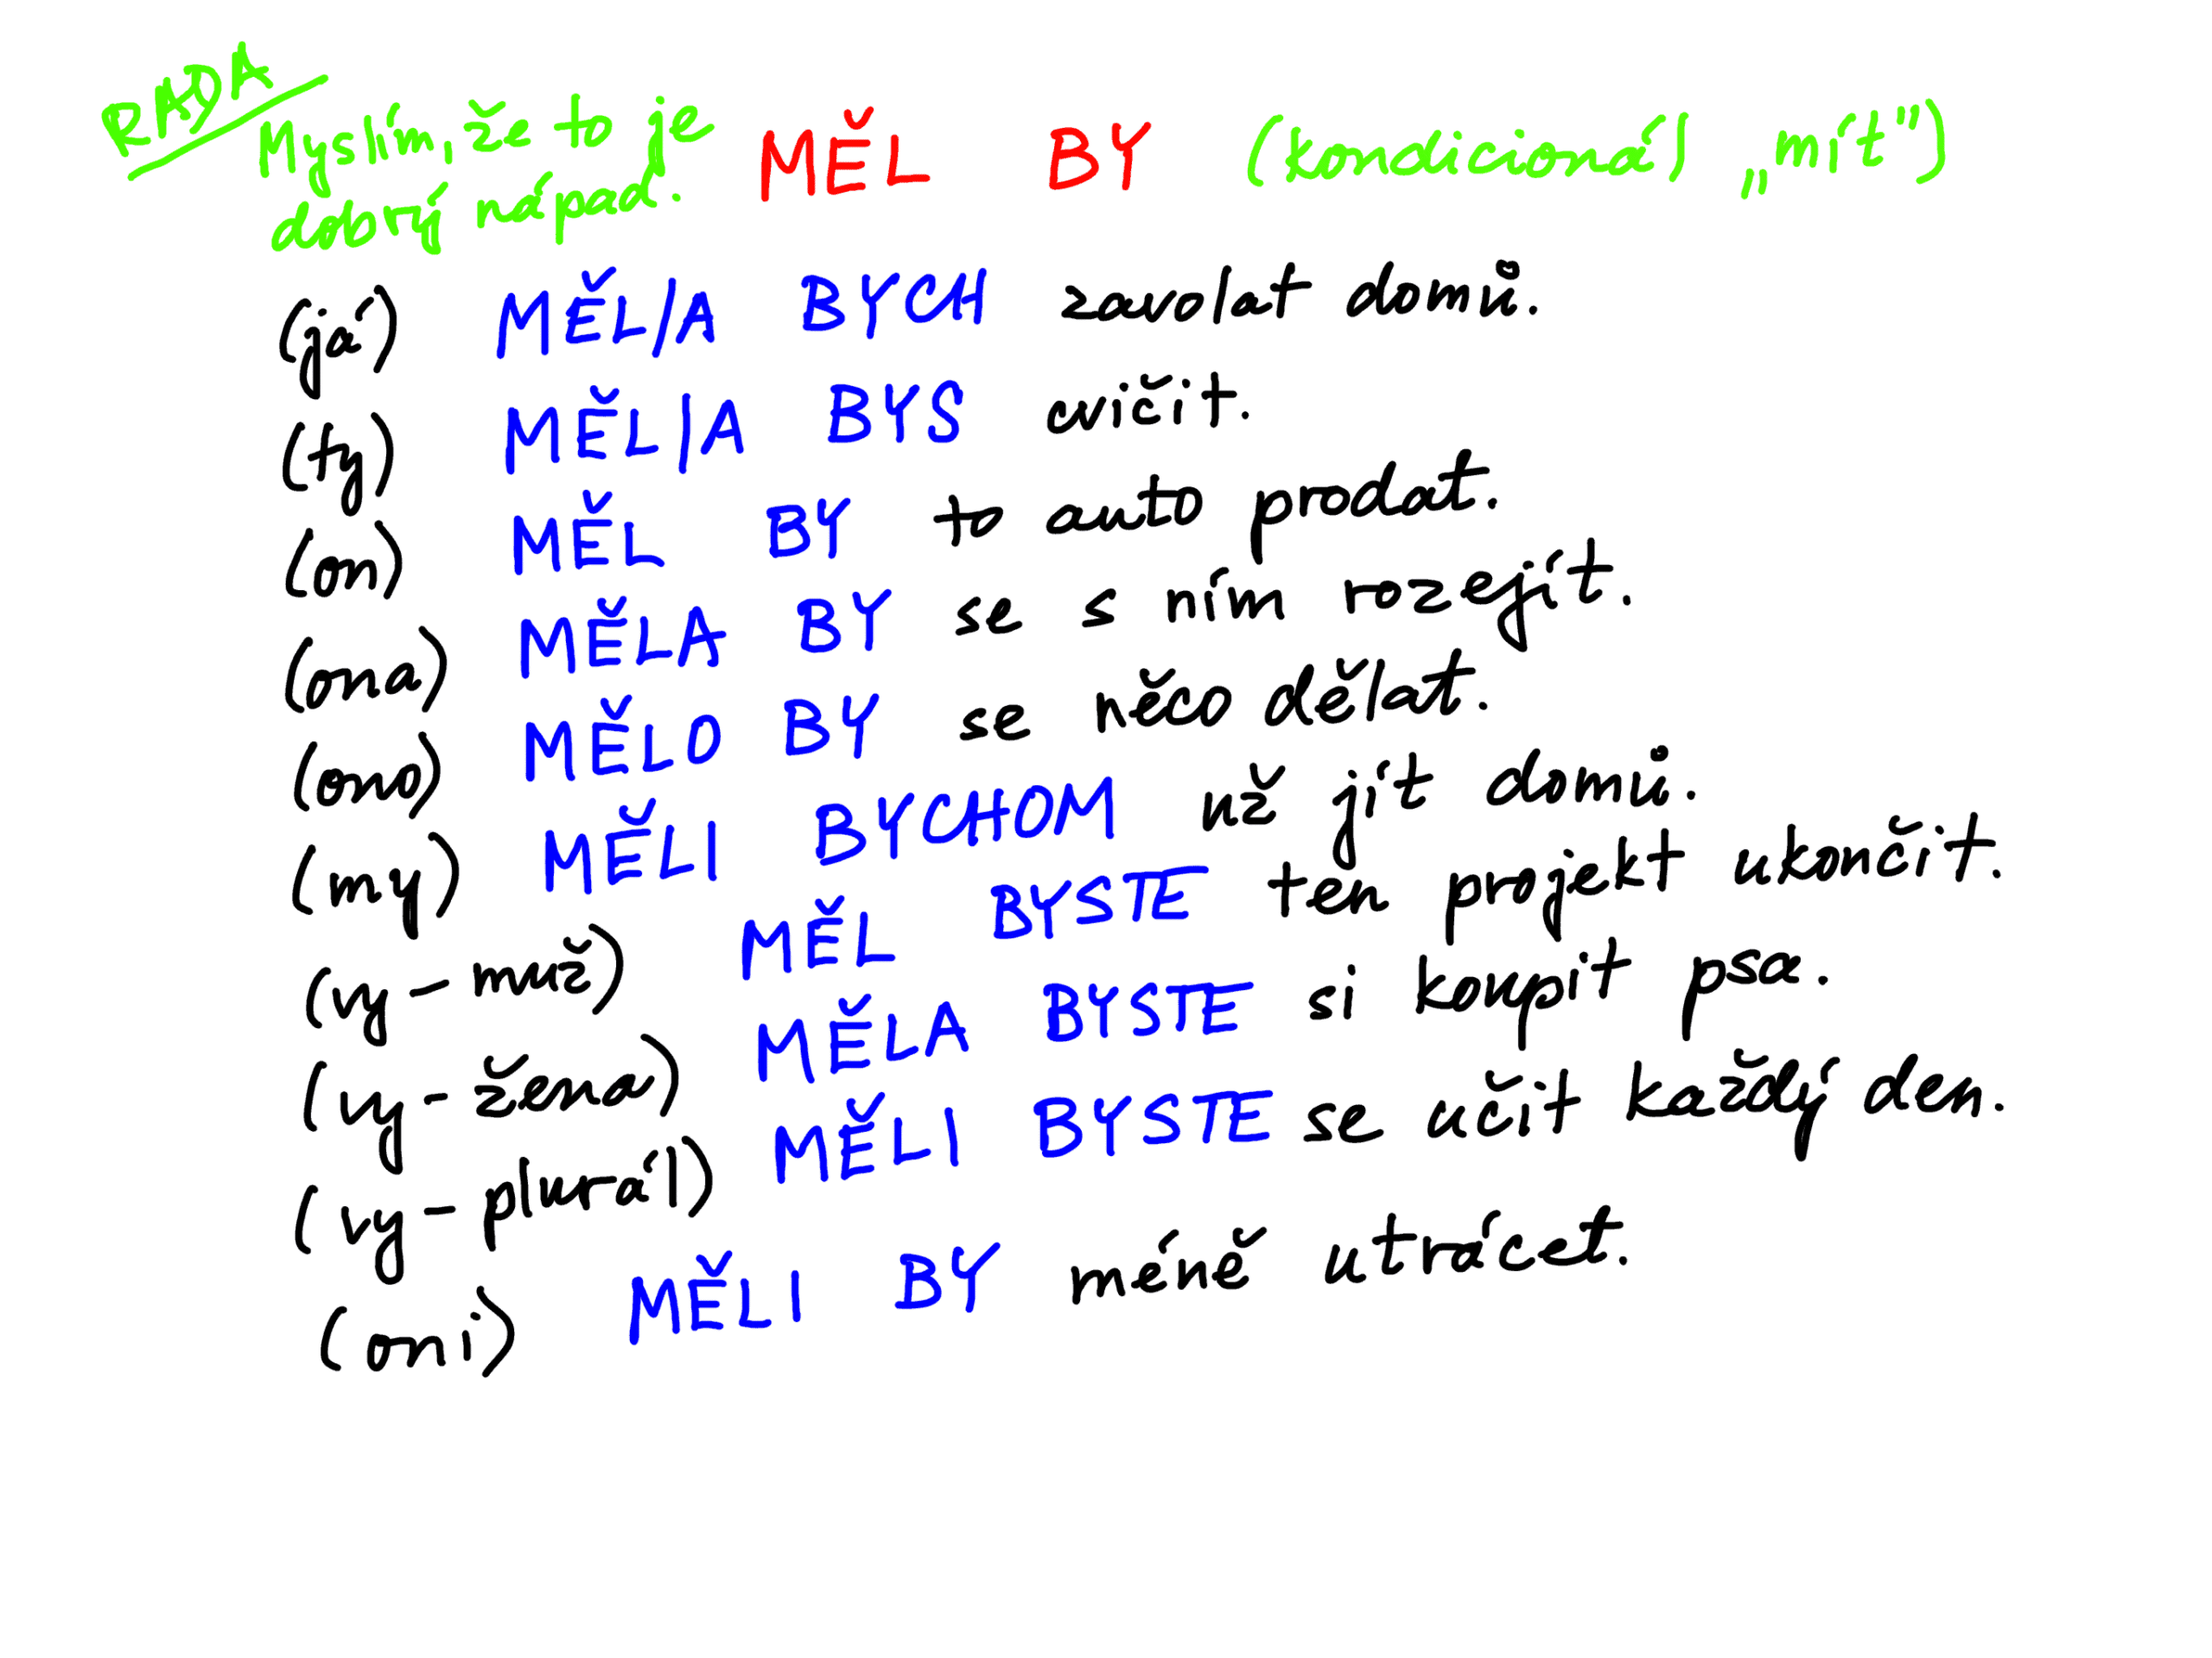 RADA
Myslím, že to je
dobrý nápad.
MĚL BY (kondicionál „mít")
(já) MĚL/A BYCH zavolat domů.
(ty) MĚL/A BYS cvičit.
(on) MĚL BY to auto prodat.
(ona) MĚLA BY se s ním rozejít.
(ono) MĚLO BY se něco dělat.
(my) MĚLI BYCHOM už jít domů.
(vy – muž) MĚL BYSTE ten projekt ukončit.
(vy - žena) MĚLA BYSTE si koupit psa.
(vy – plurál) MĚLI BYSTE se učit každý den.
(oni) MĚLI BY méně utrácet.